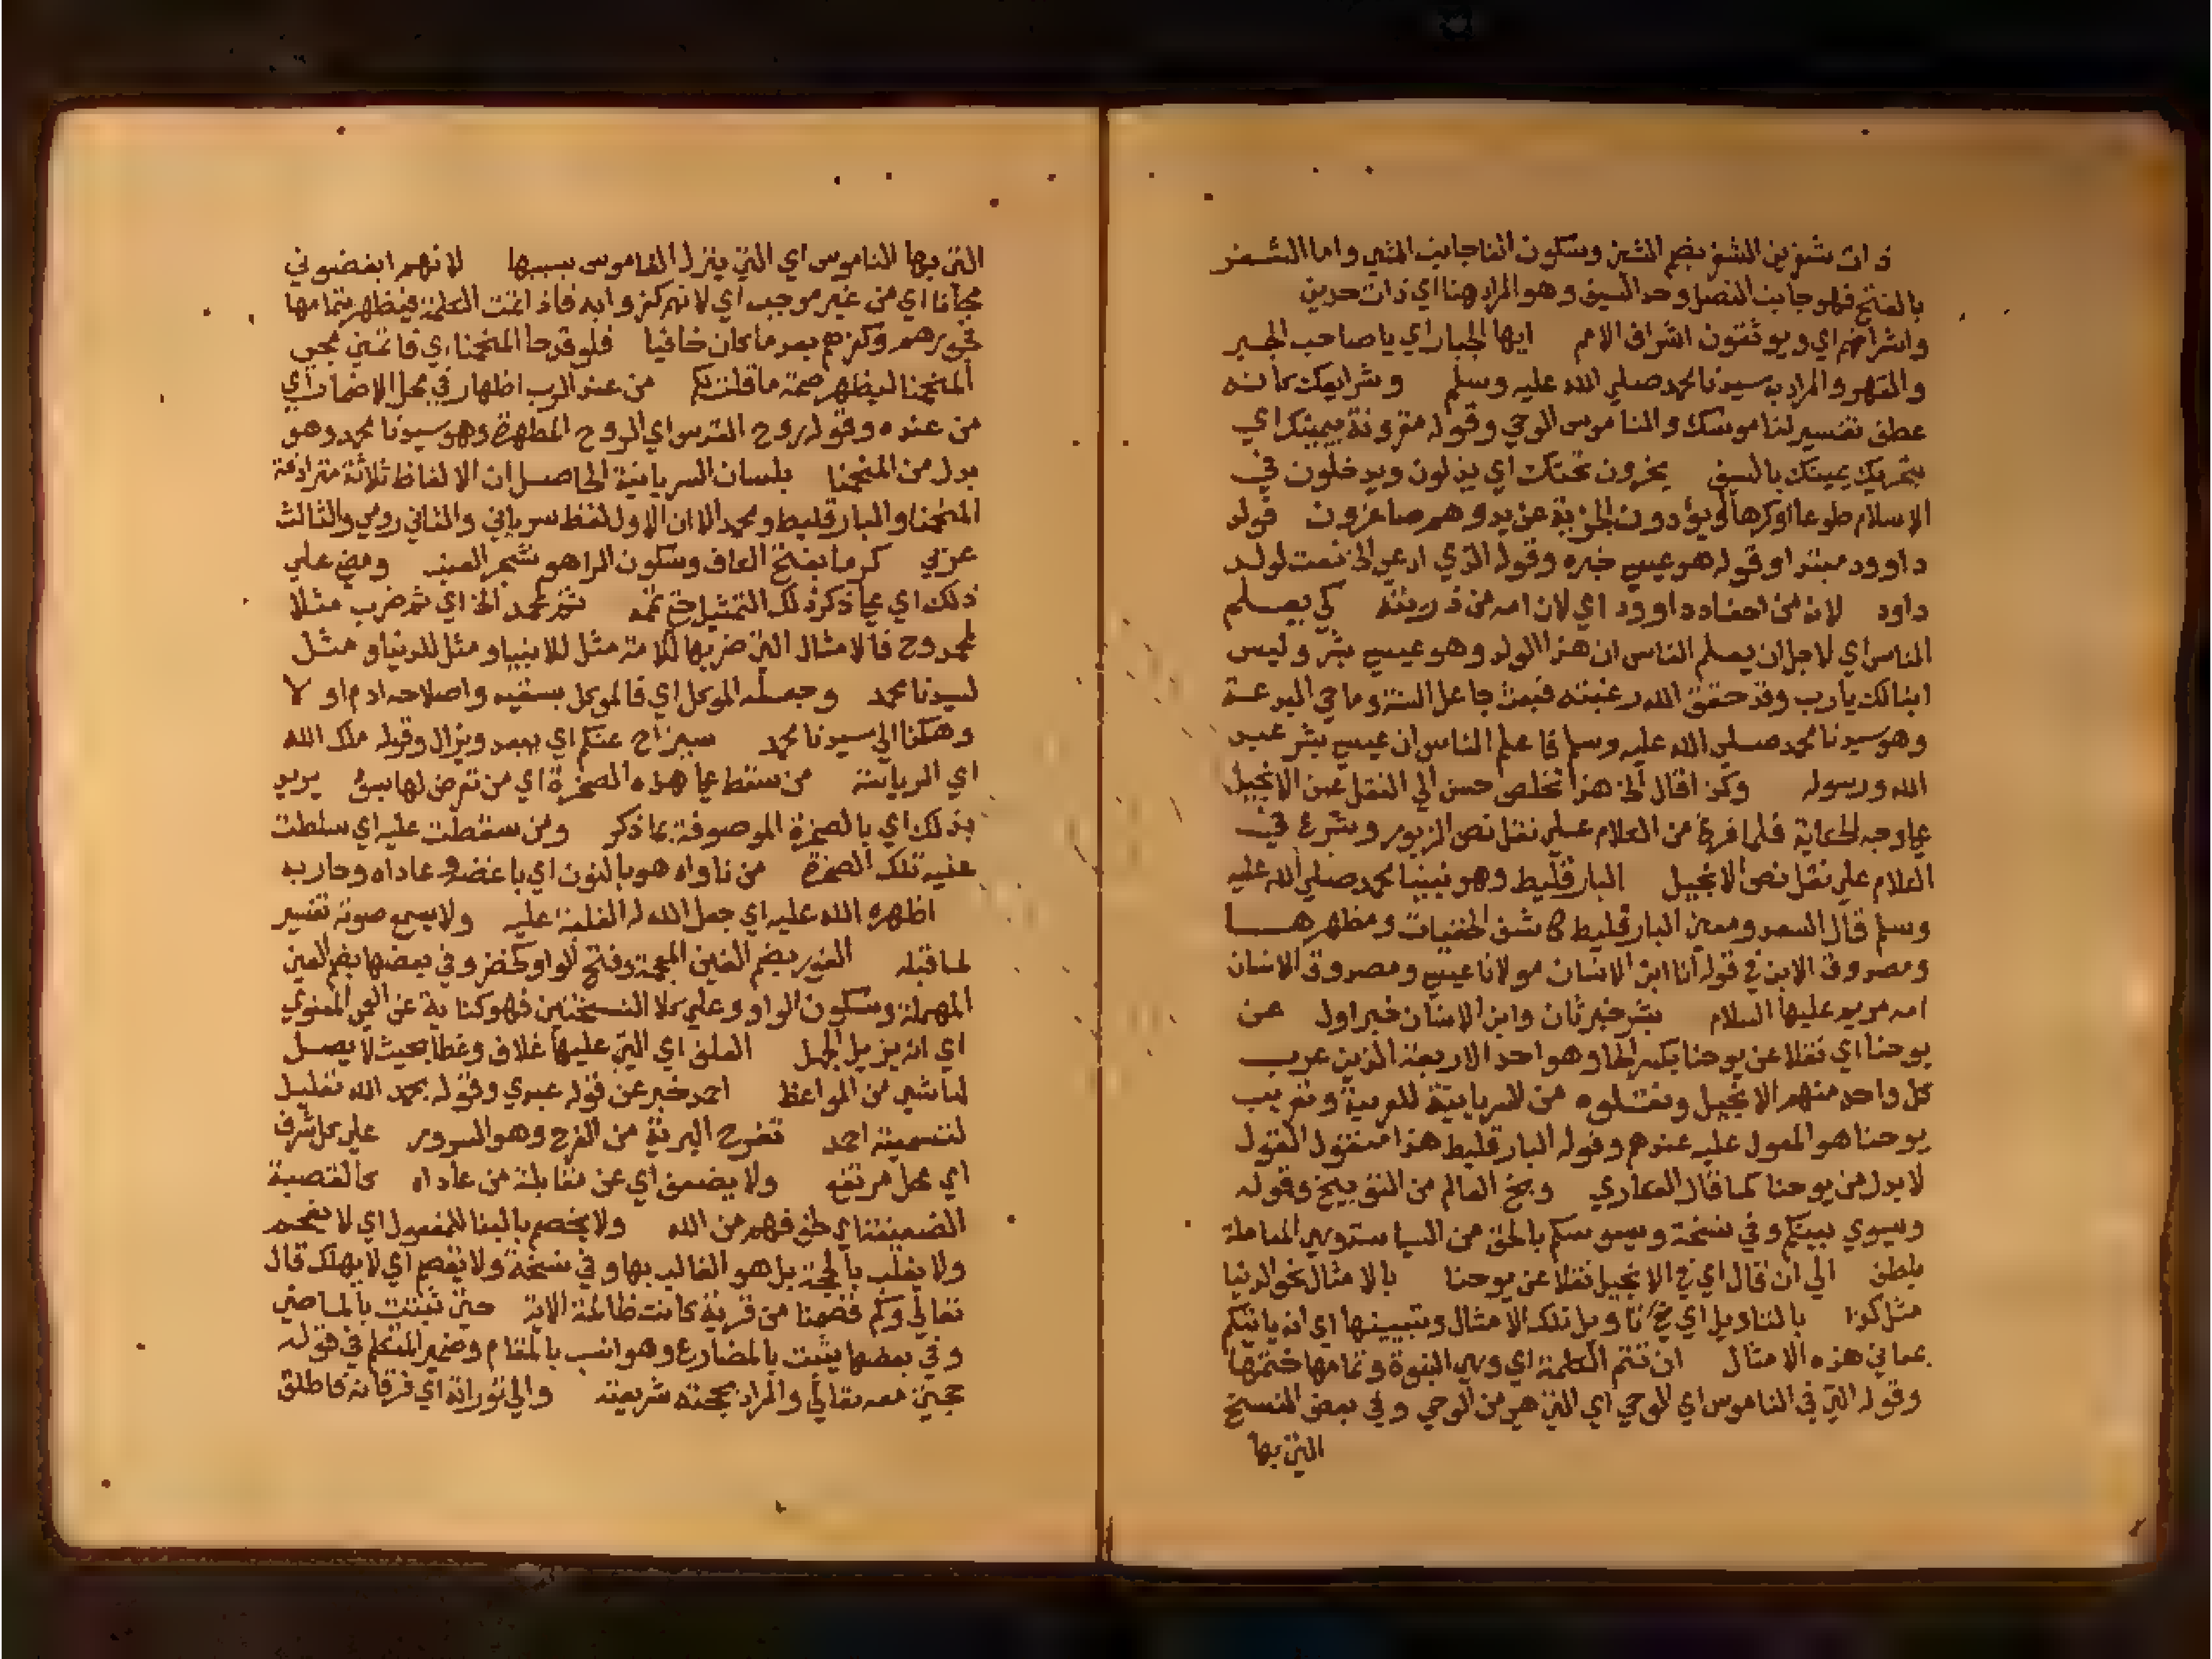 ذات شفرين الشفر بضم الشين وسكون الفا جانب الشي واما الشفر
بالفتح فهو جانب النصل وحد السيف وهو المراد هنا اي ذات حدين
واشرافهم اي ويوثقون اشراف الامم ايها الجبار اي يا صاحب الجبر
والقهر والمراد به سيدنا محمد صلي الله عليه وسلم وشرايعك كانه
عطف تفسير لناموسك والناموس الوحي وقوله مقرونة بيمينك اي
بتحريك يمينك بالسيف يخرون تحتك اي يذلون ويدخلون في
الاسلام طوعا اوكرها او يؤدون الجزية عن يد وهم صاغرون قوله
داوود مبتدا وقوله هو عيسي خبره وقوله الذي ادعي الخ نعت لولد
داود لانه من احفاد داوود اي لان امه من ذريته كي يعلم
الناس اي لاجل ان يعلم الناس ان هذا الولد وهو عيسي بشر وليس
ابنا لك يا رب وقد حقق الله رغبته فبعث جاعل السنة وماحي البدعة
وهو سيدنا محمد صلي الله عليه وسلم فاعلم الناس ان عيسي بشر عبد
الله ورسوله وكذا قال الخ هذا تخلص حسن الي النقل عن الانجيل
علي وجه الحكاية فلما فرغ من الكلام علي نقل نص الزبور وشرع في
الكلام علي نقل نص الانجيل البارقليط وهو نبينا محمد صلي الله عليه
وسلم قال السعد ومعني البارقليط كاشف الخفيات ومظهرها
ومصدوق الابن في قوله انا ابن الانسان مولانا عيسي ومصدوق الانسان
امه مريم عليها السلام بشر خبر ثان وابن الانسان خبر اول عن
يوحنا اي نقلا عن يوحنا بكسر الحا وهو احد الاربعة الذين عرب
كل واحد منهم الانجيل ونقلوه من السريانية للعربية وتعريب
يوحنا هو المعول عليه عندهم وقوله البارقليط هذا منقول القول
لا بدل من يوحنا كما قال العكاري وبخ العالم من التوبيخ وقوله
وسيوي بينكم وفي نسخة وسيوسكم بالحق من السياسة وهي المعاملة
بلطف الي ان قال اي في الانجيل نقلا عن يوحنا بالامثال نحو الدنيا
مثل كذا بالتاويل اي في تاويل تلك الامثال وتبيينها اي انه ياتيكم
بمعاني هذه الامثال ان تتم الكلمة اي وهي النبوة وتمامها ختمها
وقوله التي في الناموس اي الوحي اي التي هي من الوحي وفي بعض النسخ
التي بها
التي بها الناموس اي التي ينزل الناموس بسببها لانهم ابغضوني
مجانا اي من غير موجب اي لانهم كفروا به فاذا تمت الكلمة فيظهر بتمامها
فجورهم وكفرهم بعد ما كان خافيا فلو قد جا المنحمنا اي فاتمني مجي
المنحمنا ليظهر صحة ما قلت لكم من عند الرب اظهار في محل الاضمار اي
من عنده وقوله روح القدس اي الروح المطهرة وهو سيدنا محمد وهو
بدل من المنحمنا بلسان السريانية الحاصل ان الالفاظ ثلاثة مترادفة
المنحمنا والبارقليط ومحمد الا ان الاول لفظ سرياني والثاني رومي والثالث
عربي كرما بفتح الكاف وسكون الرا هو شجر العنب ومضي علي
ذلك اي علي ذكر ذلك التمثيل حتي تمه ثم محمد الخ اي ثم ضرب مثلا
لمحمد وح فالامثال التي ضربها ثلاثة مثل للانبيا ومثل للدنيا ومثل
لسيدنا محمد وجعله الموكل اي فالموكل بسقيه واصلاحه ادم اولا
وهكذا الي سيدنا محمد سيزاح عنكم اي يبعد ويزال وقوله ملك الله
اي الربانية من سقط علي هذه الصخرة اي من تعرض لها بسوء يريد
بذلك اي بالصخرة الموصوفة بما ذكر ومن سقطت عليه اي سلطت
عليه تلك الصخرة من ناواه هو بالنون اي باغضه وعاداه وحاربه
اظهره الله عليه اي جعل الله له الغلبة عليه ولا يسمع صوته تفسير
لما قبله الغور بضم الغين المعجمة وفتح الواو وفي بعضها بضم العين
المهملة وسكون الواو وعلي كلا النسختين فهو كناية عن العمي المعنوي
اي انه يزيل الجهل الغلف اي التي عليها غلاف وغطا بحيث لا يصل
لها شي من المواعظ احمد خبر عن قوله عبدي وقوله بحمد الله تعليل
لتسميته احمد تفرح البرية من الفرح وهو السرور علي كل شرف
اي محل مرتفع ولا يضعف اي عن مقابلة من عاداه كالقصبة
الضعيفة اي فهو من الله ولا يخصم بالبنا للمفعول اي لا يفحم
ولا يغلب بالحجة بل هو الغالب بها وفي نسخة ولا يقصم اي لا يهلك قال
تعالي وكم قصمنا من قرية كانت ظالمة الاية حتي تثبتت بالماضي
وفي بعضها يثبت بالمضارع وهو انسب بالمقام وضمير المتكلم في قوله
حجتي معه تعالي والمراد بحجته شريعته والي توراته اي فرقانه فاطلق